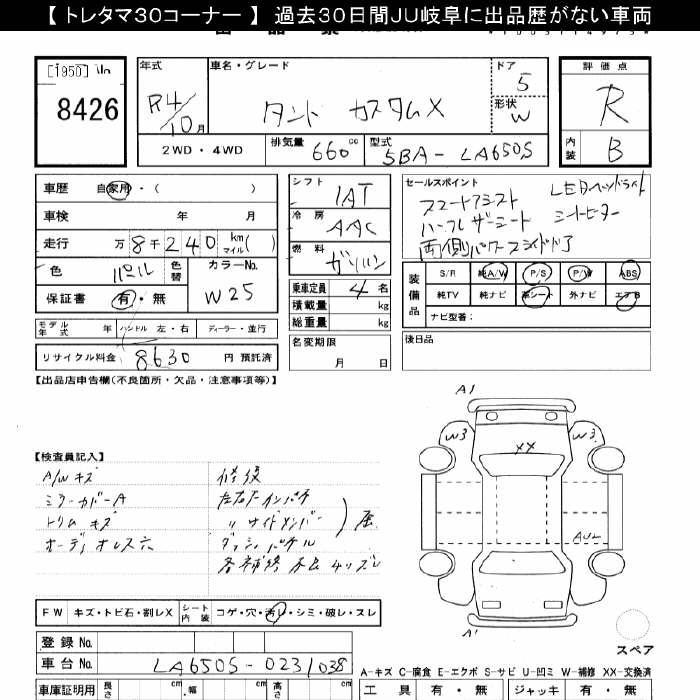 【 トレタマ30コーナー 】 過去30日間JU岐阜に出品歴がない車両
[1950]
8426
年式
R4/10月
車名・グレード
タント カスタムX
ドア
5
形状
W
評価点
R
内装
B
2WD・4WD
排気量
660 cc
型式
5BA-LA650S
車歴 自家用・( )
車検 年 月
走行 万 8千240 km マイル( )
色 パール 色替
カラーNo. W25
保証書 有・無
モデル年式 年 ハンドル 左・右 ディーラー・並行
リサイクル料金 8630 円 預託済
シフト
IAT
冷房
AAC
燃料
ガソリン
乗車定員 4 名
積載量 kg
総重量 kg
名変期限
月 日
セールスポイント
スマートアシスト LEDヘッドライト
ハーフレザーシート シートヒーター
両側パワースライドドア
装備品
S/R 純A/W P/S P/W ABS
純TV 純ナビ 革シート 外ナビ エアB
ナビ型番:
後日品
【出品店申告欄(不良箇所・欠品・注意事項等)】
【検査員記入】
A/Wキズ
ミラーカバーA
トリムキズ
オーディオレス穴
修復
左右Fインパネ
〃 サイドメンバー
ダッシュパネル
A1
W3
XX
W3
AU2
A1
スペア
FW キズ・トビ石・割レX
シート内装 コゲ・穴・汚レ・シミ・破レ・スレ
登録 No.
車台 No. LA650S-0231038
車庫証明用 長さ cm 幅 cm 高さ cm
A-キズ C-腐食 E-エクボ S-サビ U-凹ミ W-補修 XX-交換済
工具 有・無 ジャッキ 有・無